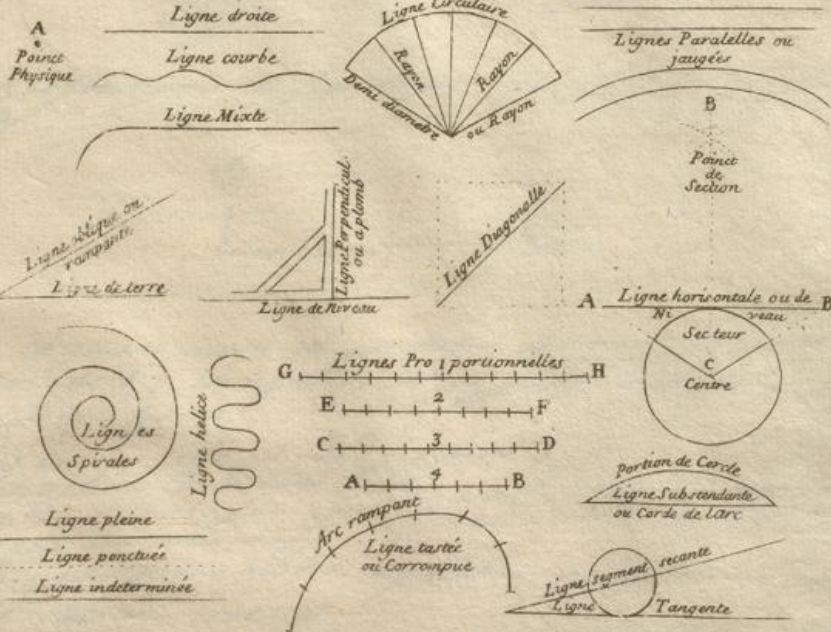 A
Poinct
Physique
Ligne droite
Ligne courbe
Ligne Mixte
Ligne Circulaire
Rayon
Rayon
Demi diametre
ou Rayon
Lignes Paralelles ou
jaugées
B
Poinct
de
Section
Ligne oblique ou
rampante
Ligne de terre
Ligne Perpendicul.
ou a plomb
Ligne de Niveau
Ligne Diagonalle
A Ligne horisontale ou de B
Ni veau
Secteur
C
Centre
Lignes
Spirales
Ligne helice
Lignes Pro 1 portionnelles
G H
E 2 F
C 3 D
A 4 B
Portion de Cercle
Ligne Substendante
ou Corde de l'arc
Ligne pleine
Ligne ponctuée
Ligne indeterminée
Arc rampant
Ligne tastée
ou Corrompue
Ligne segment secante
Ligne Tangente